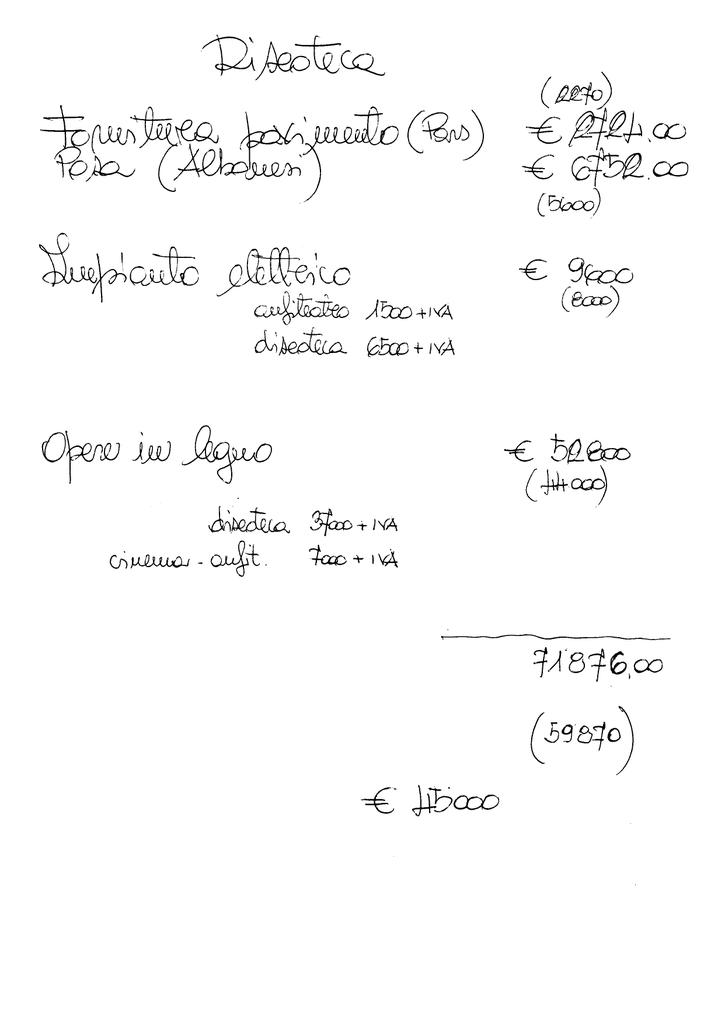 Discoteca
(2270)
Fornitura pavimento (Pars) € 2724.00
Posa (Albanesi) € 6752.00
(5600)
Impianto elettrico € 9600
(8000)
anfiteatro 1500 + IVA
discoteca 6500 + IVA
Opere in legno € 52800
(44000)
discoteca 37000 + IVA
cinema - anfit. 7000 + IVA
71876,00
(59870)
€ 45000